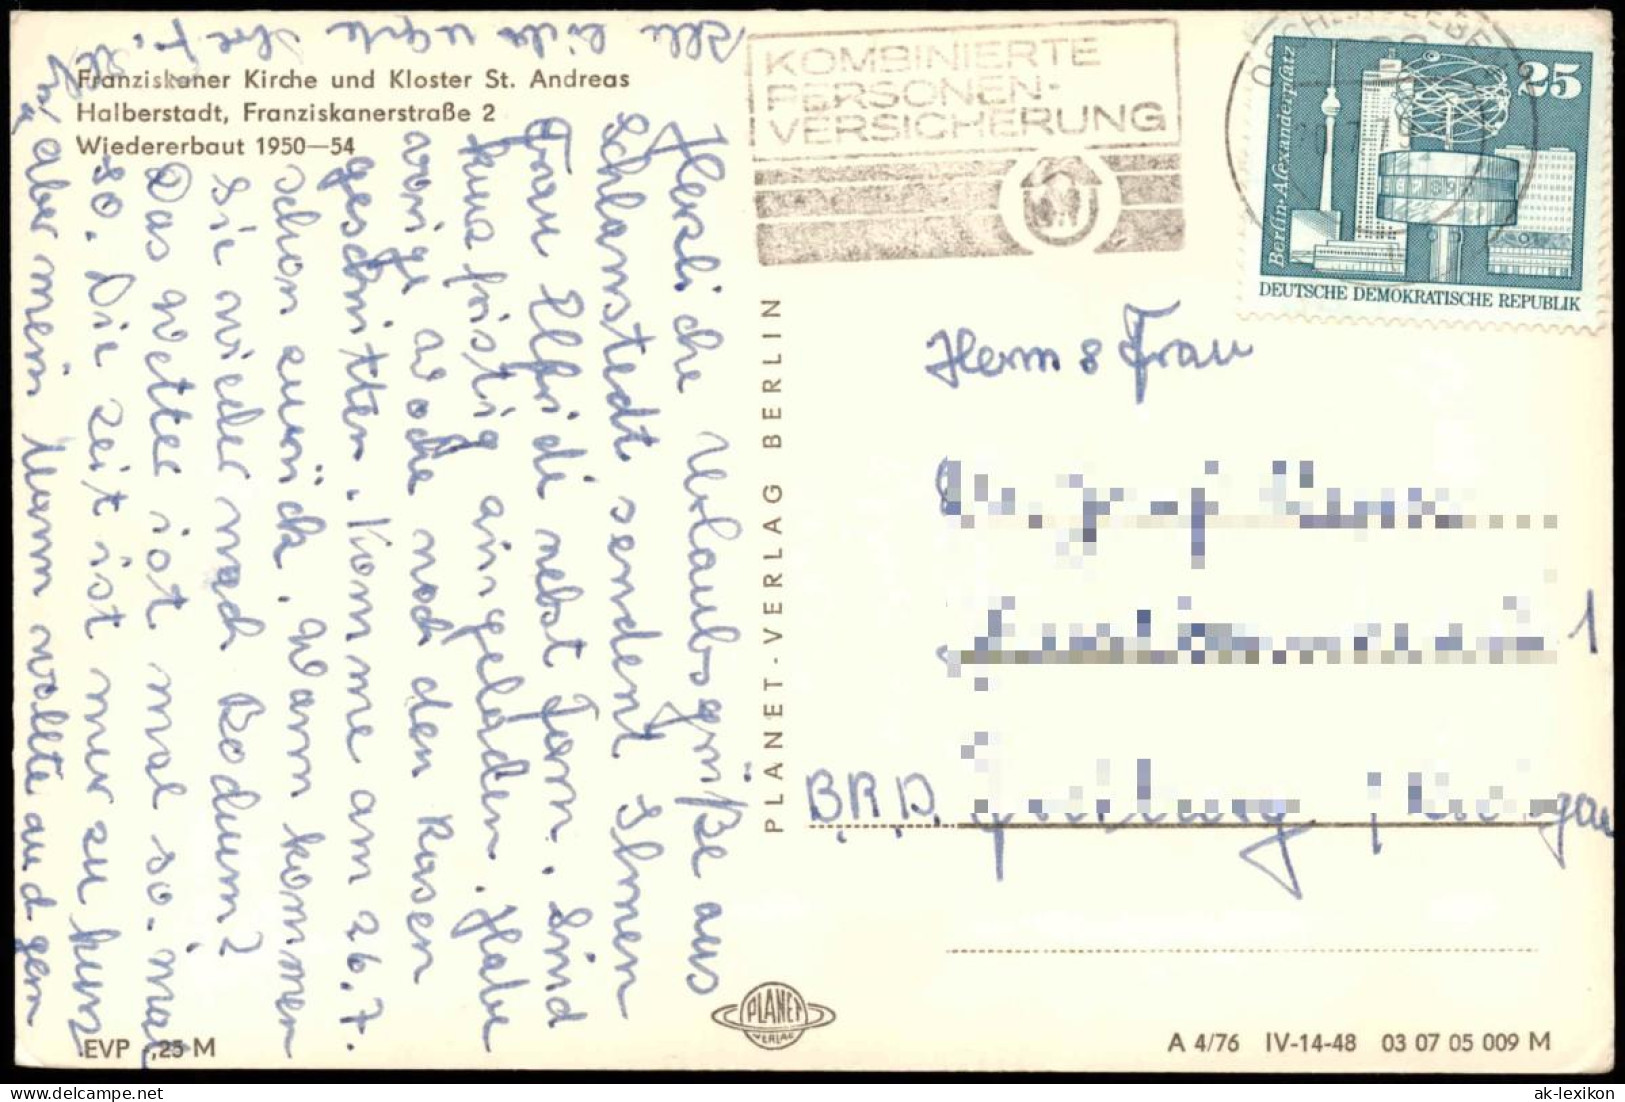 Franziskaner Kirche und Kloster St. Andreas
Halberstadt, Franziskanerstraße 2
Wiedererbaut 1950—54
Herzliche Urlaubsgrüße aus
Schlanstedt sendent Ihnen
Frau Elfriede nebst Fam. Sind
kurzfristig eingeladen. Habe
vorige Woche noch den Rasen
geschnitten. Komme am 26.7.
schon zurück. Wann kommen
Sie wieder nach Bodum?
Das Wetter ist mal so. mal
so. Die Zeit ist mir zu kurz
aber mein Mann wollte auch gern
Ihre
PLANET-VERLAG BERLIN
PLANET
VERLAG
EVP -,25 M
KOMBINIERTE
PERSONEN-
VERSICHERUNG
25
Berlin-Alexanderplatz
DEUTSCHE DEMOKRATISCHE REPUBLIK
Herrn & Frau
1
B.R.D.
A 4/76 IV-14-48 03 07 05 009 M
ak-lexikon